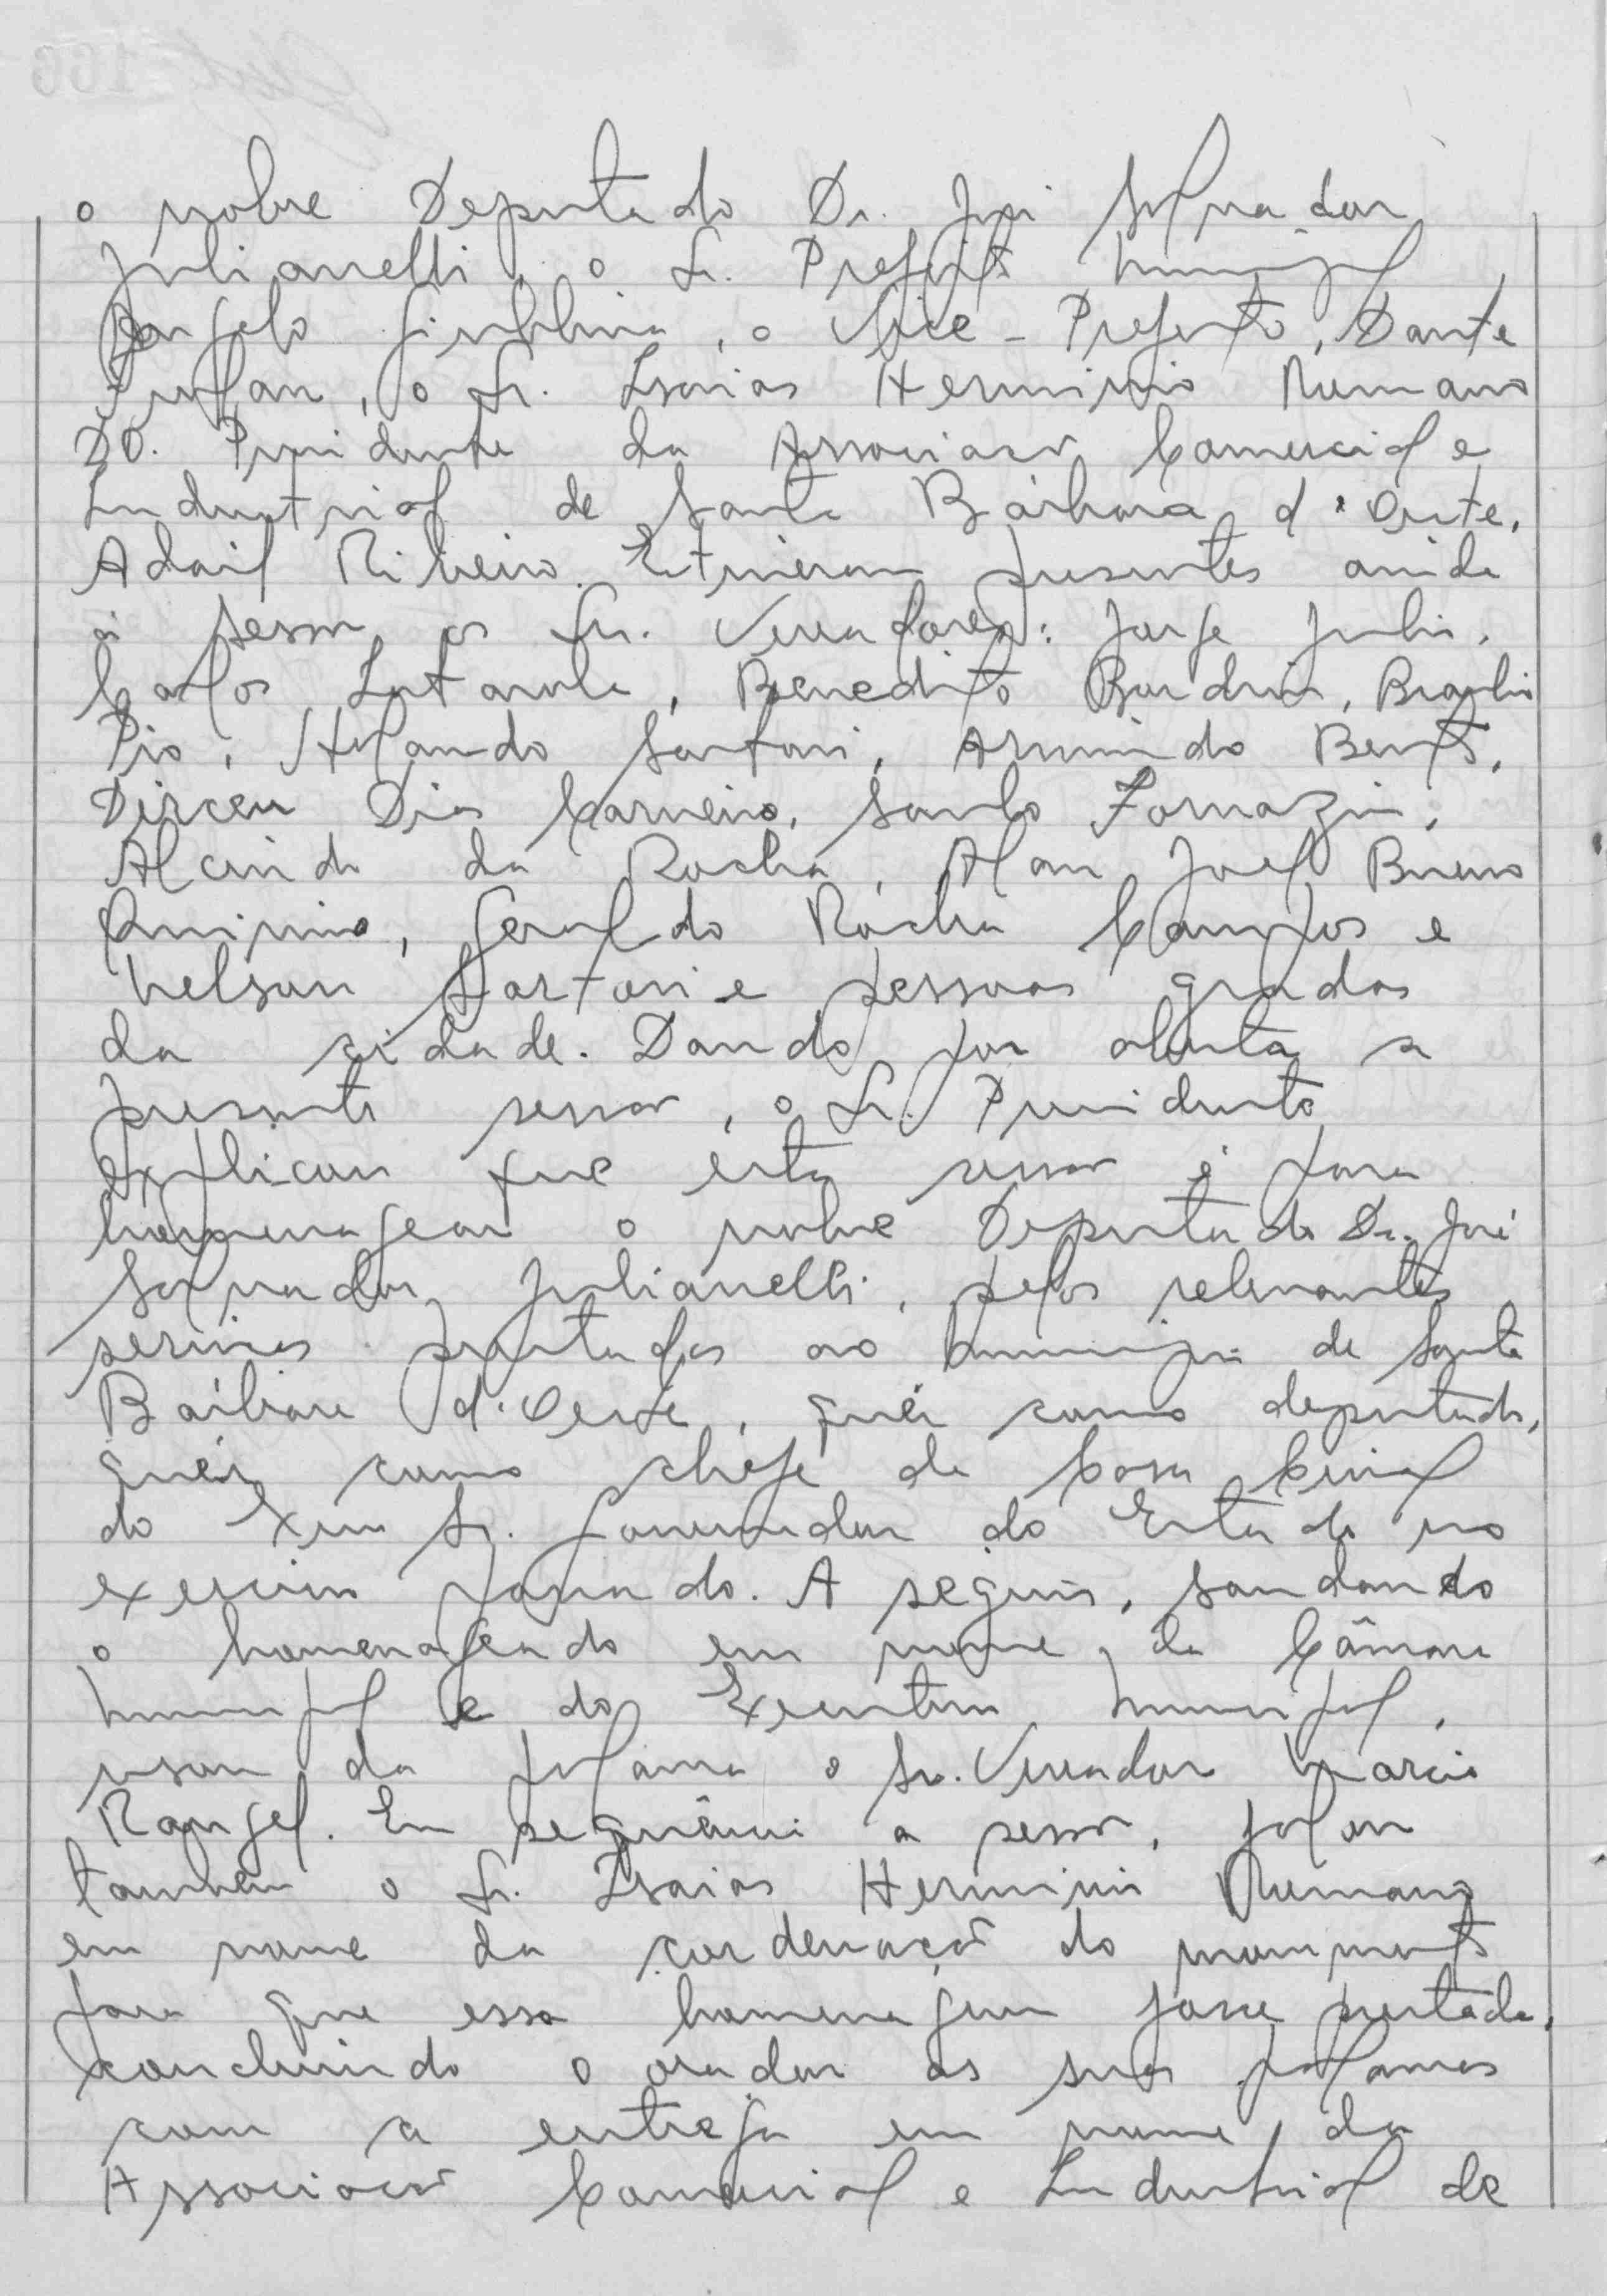 o nobre Deputado Dr. José Salvador
Julianelli, o Sr. Prefeito Municipal
Angelo Giubbina, o Vice-Prefeito, Dante
Furlan, o Sr. Isaias Herminio Romano
DD. Presidente da Associação Comercial e
Industrial de Santa Bárbara d'Oeste,
Adail Ribeiro. Estiveram presentes ainda
à sessão os Srs. Vereadores: Jorge Julio,
Carlos, Benedito, Braulio
Pio, Orlando Sartori, Armindo Bento,
Dirceu Dias Carneiro, Santo Fornazin,
Alcindo da Rocha, Alan Joel Bueno
Quirino, Geraldo Rocha Campos e
Nelson Sartori e pessoas gradas
da cidade. Dando por aberta a
presente sessão, o Sr. Presidente
explicou que esta sessão é para
homenagear o nobre Deputado Dr. José
Salvador Julianelli, pelos relevantes
serviços prestados ao Município de Santa
Bárbara d'Oeste, quér como deputado,
quér como chefe da Casa Civil
do Exmo Sr. Governador do Estado no
exercicio passado. A seguir, saudando
o homenageado em nome da Câmara
Municipal e do Executivo Municipal,
usou da palavra o Sr. Vereador Marcio
Rangel. Em sequência a sessão, falou
também o Sr. Isaias Herminio Romano
em nome da cordenação do movimento
para que essa homenagem fosse prestada,
concluindo o orador as suas palavras
com a entrega em nome da
Associação Comercial e Industrial de